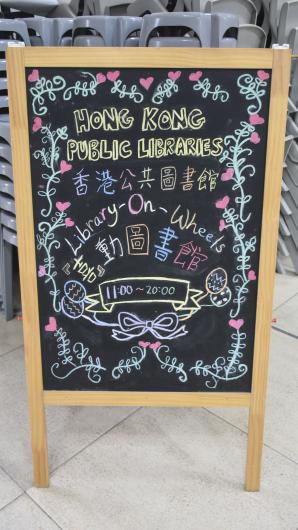 HONG KONG
PUBLIC LIBRARIES
香港公共圖書館
Library-On-Wheels
『喜』動圖書館
11:00~20:00